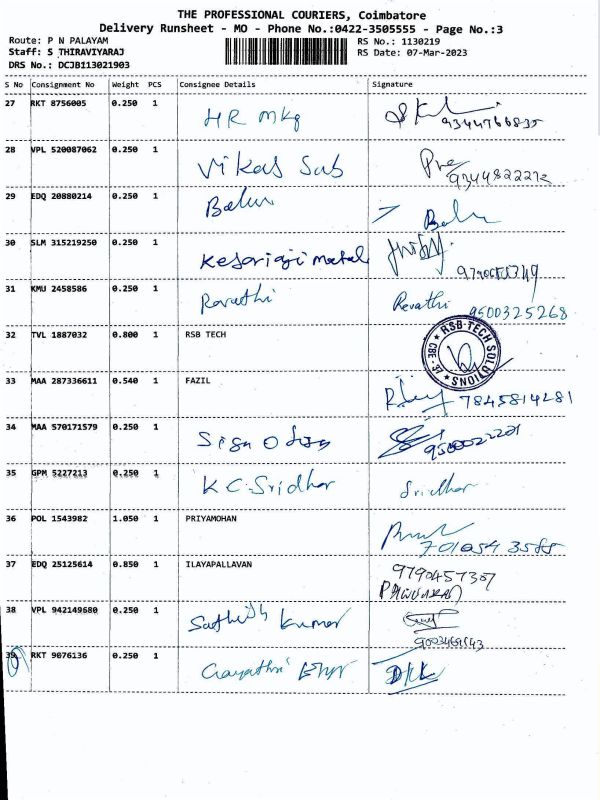 THE PROFESSIONAL COURIERS, Coimbatore
Delivery Runsheet - MO - Phone No.:0422-3505555 - Page No.:3
Route: P N PALAYAM
Staff: S THIRAVIYARAJ
DRS No.: DCJB113021903
RS No.: 1130219
RS Date: 07-Mar-2023
S No Consignment No Weight PCS Consignee Details Signature
27 RKT 8756005 0.250 1 HR mkg
9344766835
28 VPL 520087062 0.250 1 Vikas Sab
9344822212
29 EDQ 20880214 0.250 1 Balu Balu
30 SLM 315219250 0.250 1 Kesariaji metal
31 KMU 2458586 0.250 1 Revathi Revathi 9500325268
32 TVL 1887032 0.800 1 RSB TECH
RSB TECH SOLUTIONS CBE - 37
33 MAA 287336611 0.540 1 FAZIL
7845814281
34 MAA 570171579 0.250 1 Sign
35 GPM 5227213 0.250 1 K C. Sridhar Sridhar
36 POL 1543982 1.050 1 PRIYAMOHAN
701054 3588
37 EDQ 25125614 0.850 1 ILAYAPALLAVAN 9790457307
38 VPL 942149680 0.250 1 Sathish Kumar
39 RKT 9076136 0.250 1 Gayathri